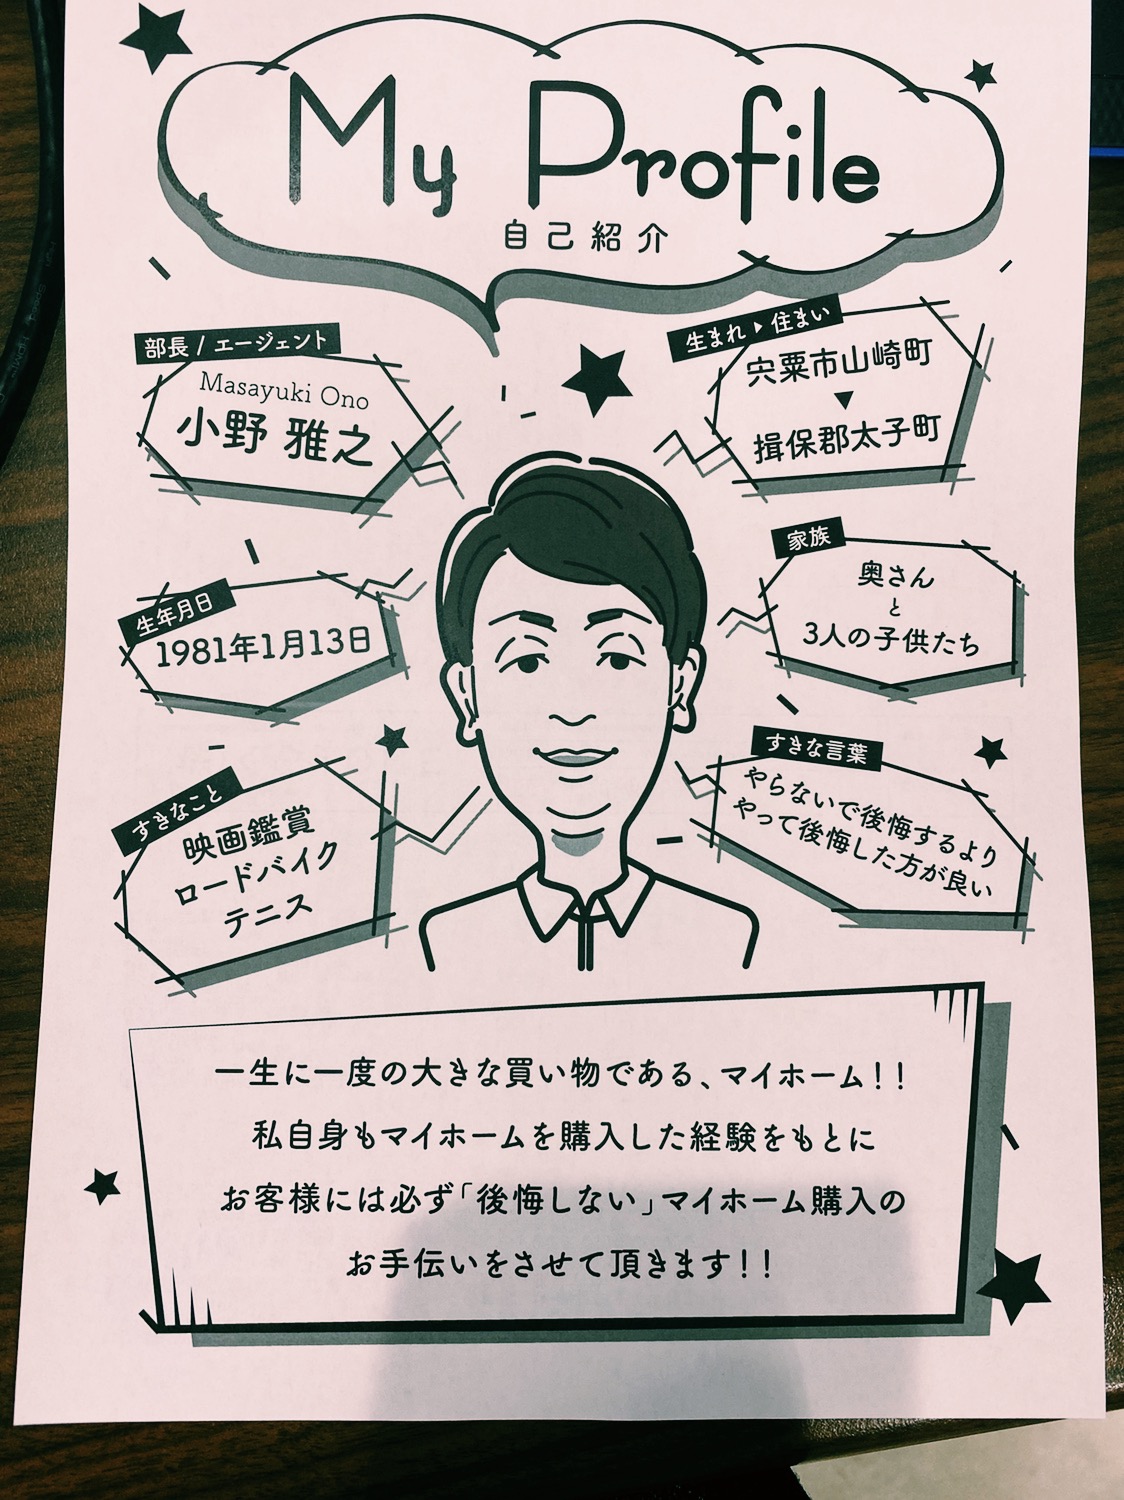 My Profile
自己紹介
部長 / エージェント
Masayuki Ono
小野 雅之
生まれ▶住まい
宍粟市山崎町
▼
揖保郡太子町
生年月日
1981年1月13日
家族
奥さん
と
3人の子供たち
すきなこと
映画鑑賞
ロードバイク
テニス
すきな言葉
やらないで後悔するより
やって後悔した方が良い
一生に一度の大きな買い物である、マイホーム!!
私自身もマイホームを購入した経験をもとに
お客様には必ず「後悔しない」マイホーム購入の
お手伝いをさせて頂きます!!